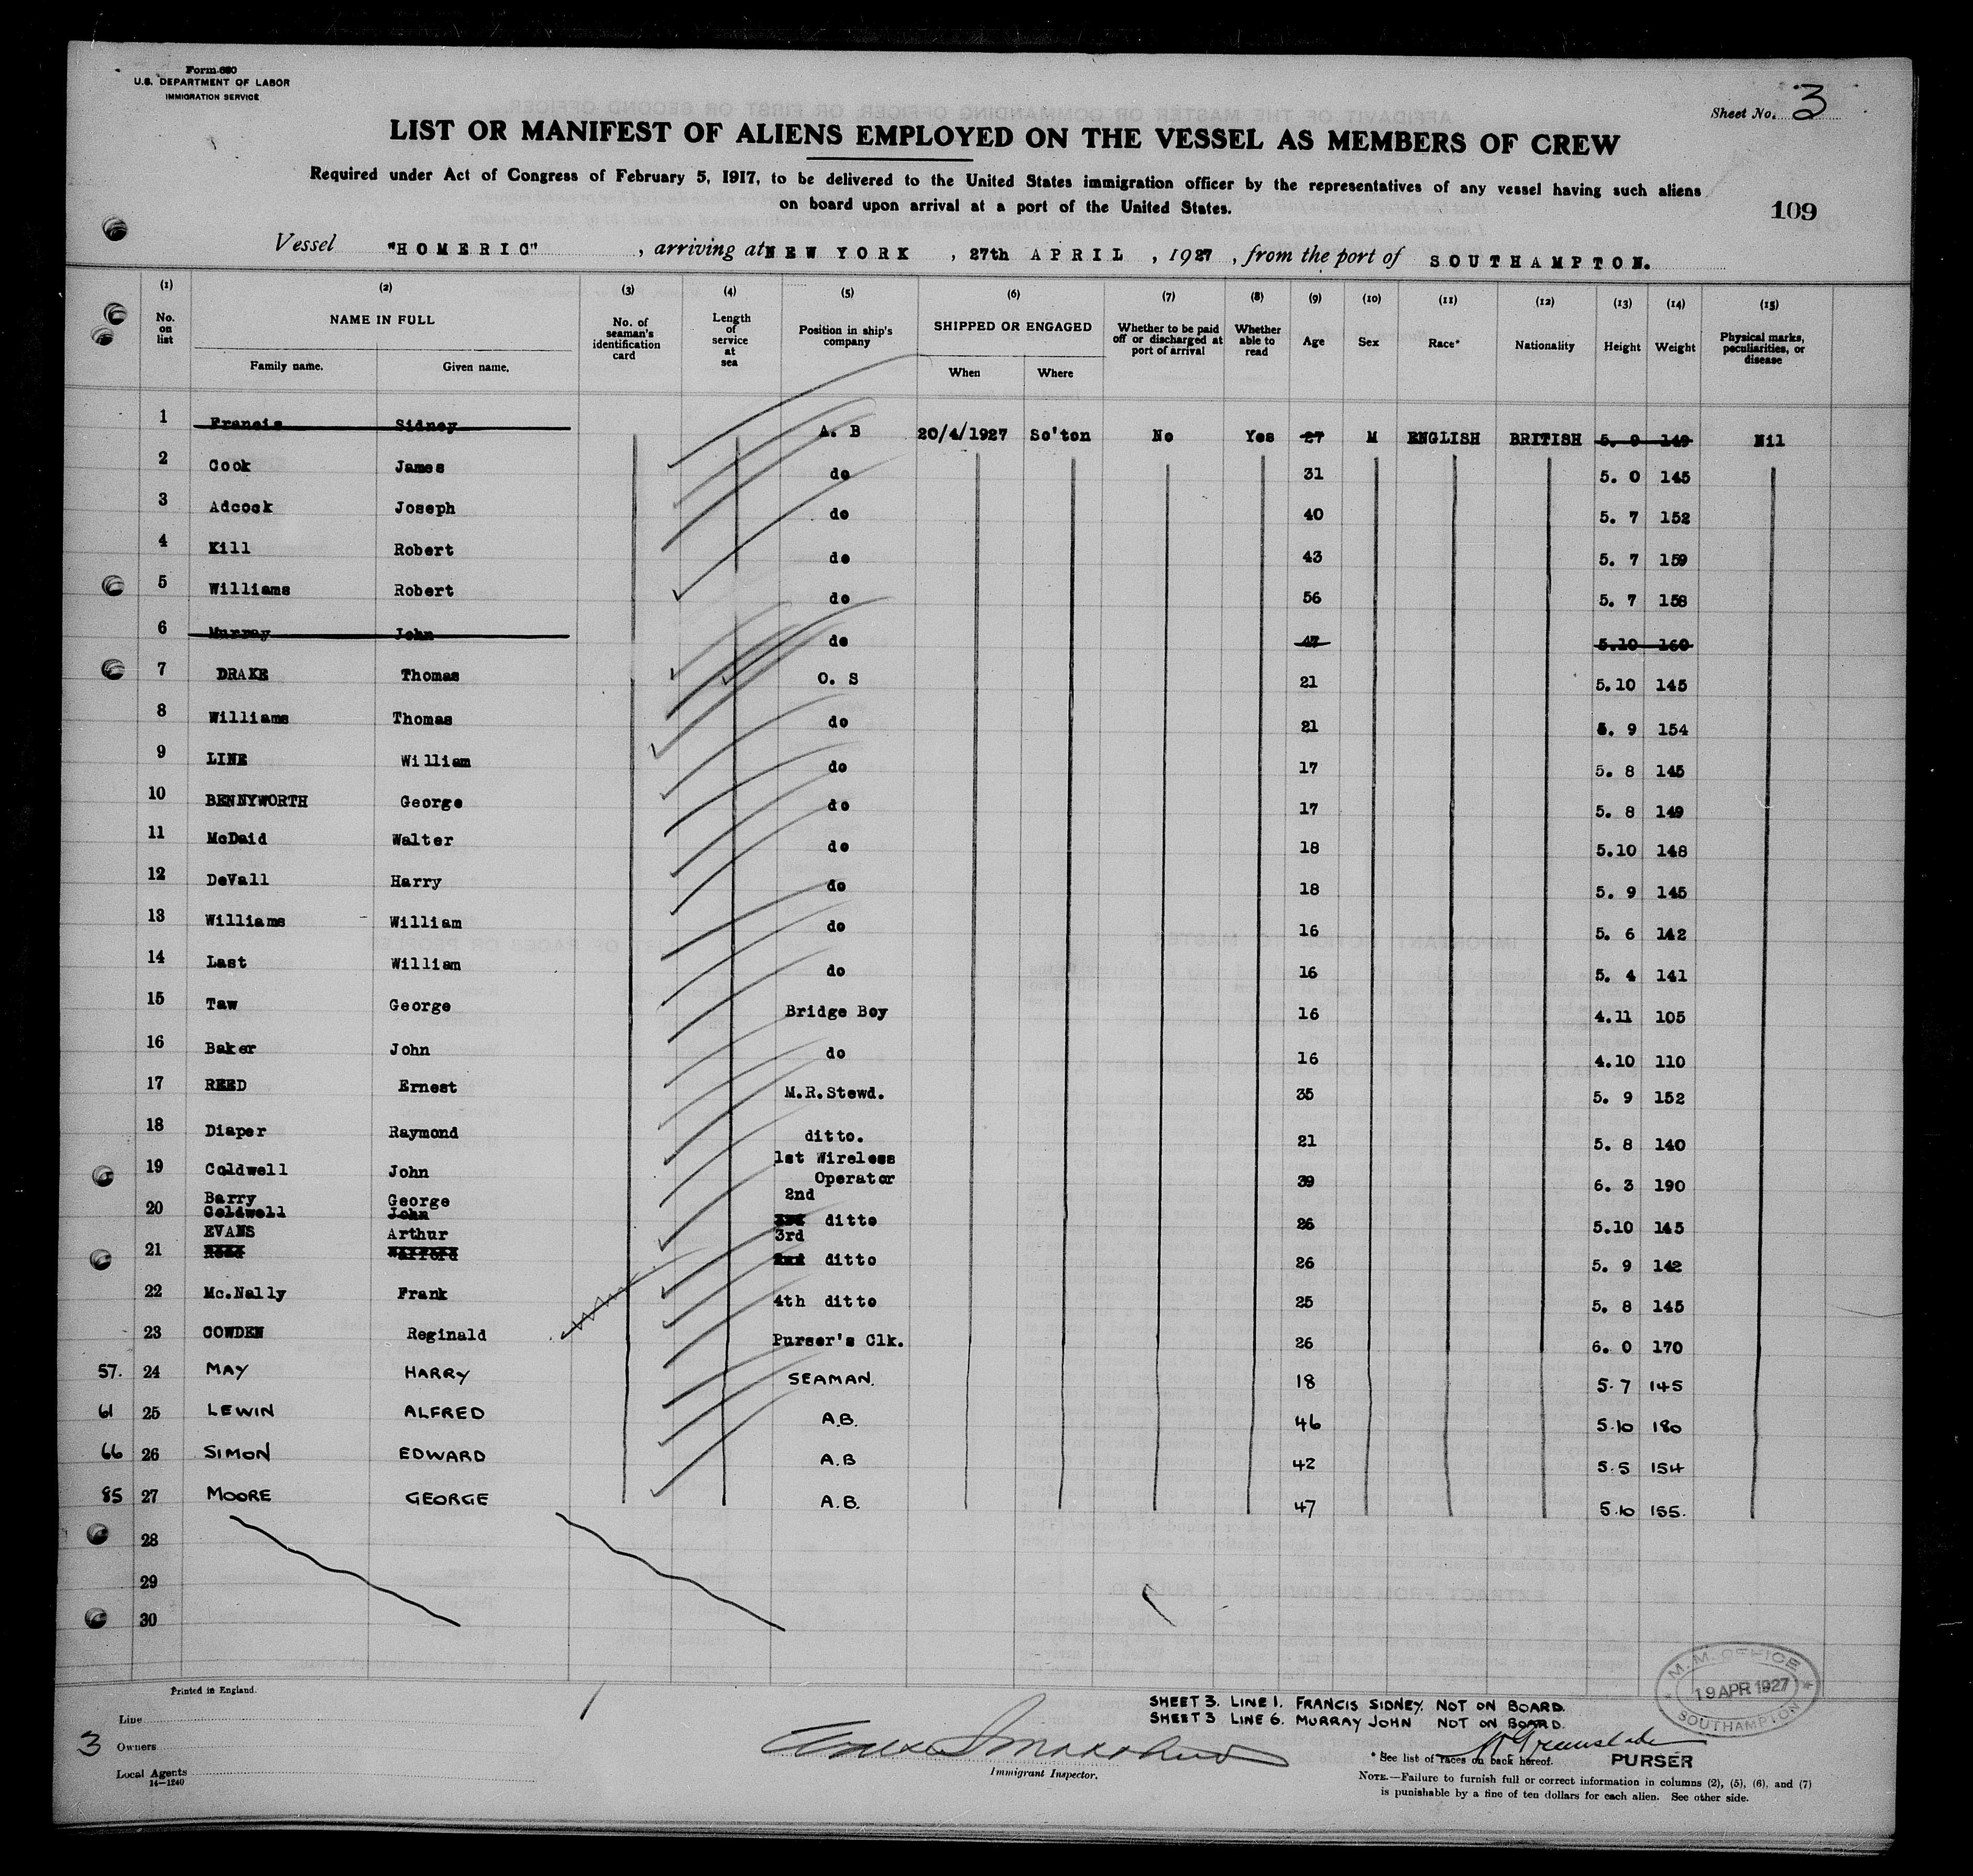 Form 680
U.S. DEPARTMENT OF LABOR
IMMIGRATION SERVICE
Sheet No. 3
LIST OR MANIFEST OF ALIENS EMPLOYED ON THE VESSEL AS MEMBERS OF CREW
Required under Act of Congress of February 5, 1917, to be delivered to the United States immigration officer by the representatives of any vessel having such aliens
on board upon arrival at a port of the United States.
109
Vessel "HOMERIC", arriving at NEW YORK, 27th APRIL, 1927, from the port of SOUTHAMPTON.
(1) (2) (3) (4) (5) (6) (7) (8) (9) (10) (11) (12) (13) (14) (15)
No. on list NAME IN FULL Family name. Given name. No. of seaman's identification card Length of service at sea Position in ship's company SHIPPED OR ENGAGED When Where Whether to be paid off or discharged at port of arrival Whether able to read Age Sex Race* Nationality Height Weight Physical marks, peculiarities, or disease
1 Francis Sidney A. B 20/4/1927 So'ton No Yes 27 M ENGLISH BRITISH 5. 9 149 Nil
2 Cook James do 31 5. 0 145
3 Adcock Joseph do 40 5. 7 152
4 Kill Robert do 43 5. 7 159
5 Williams Robert do 56 5. 7 158
6 Murray John do 47 5.10 160
7 DRAKE Thomas O. S 21 5.10 145
8 Williams Thomas do 21 5. 9 154
9 LINE William do 17 5. 8 145
10 BENNYWORTH George do 17 5. 8 149
11 McDaid Walter do 18 5.10 148
12 DeVall Harry do 18 5. 9 145
13 Williams William do 16 5. 6 142
14 Last William do 16 5. 4 141
15 Taw George Bridge Boy 16 4.11 105
16 Baker John do 16 4.10 110
17 REED Ernest M.R.Stewd. 35 5. 9 152
18 Diaper Raymond ditto. 21 5. 8 140
19 Coldwell John 1st Wireless Operator 39 6. 3 190
Barry George 2nd
20 Coldwell John ditto 26 5.10 145
EVANS Arthur 3rd
21 ditto 26 5. 9 142
22 Mc.Nally Frank 4th ditto 25 5. 8 145
23 COWDEN Reginald Purser's Clk. 26 6. 0 170
57. 24 MAY HARRY SEAMAN. 18 5.7 145
61 25 LEWIN ALFRED A.B. 46 5.10 180
66 26 SIMON EDWARD A.B 42 5.5 154
85 27 MOORE GEORGE A.B. 47 5.10 155.
28
29
30
Printed in England.
Line
3 Owners
Local Agents
14—1240
Immigrant Inspector.
SHEET 3. LINE 1. FRANCIS SIDNEY. NOT ON BOARD.
SHEET 3 LINE 6. MURRAY JOHN NOT ON BOARD.
M.M. OFFICE
19 APR 1927
SOUTHAMPTON
* See list of races on back hereof. PURSER
NOTE.—Failure to furnish full or correct information in columns (2), (5), (6), and (7)
is punishable by a fine of ten dollars for each alien. See other side.